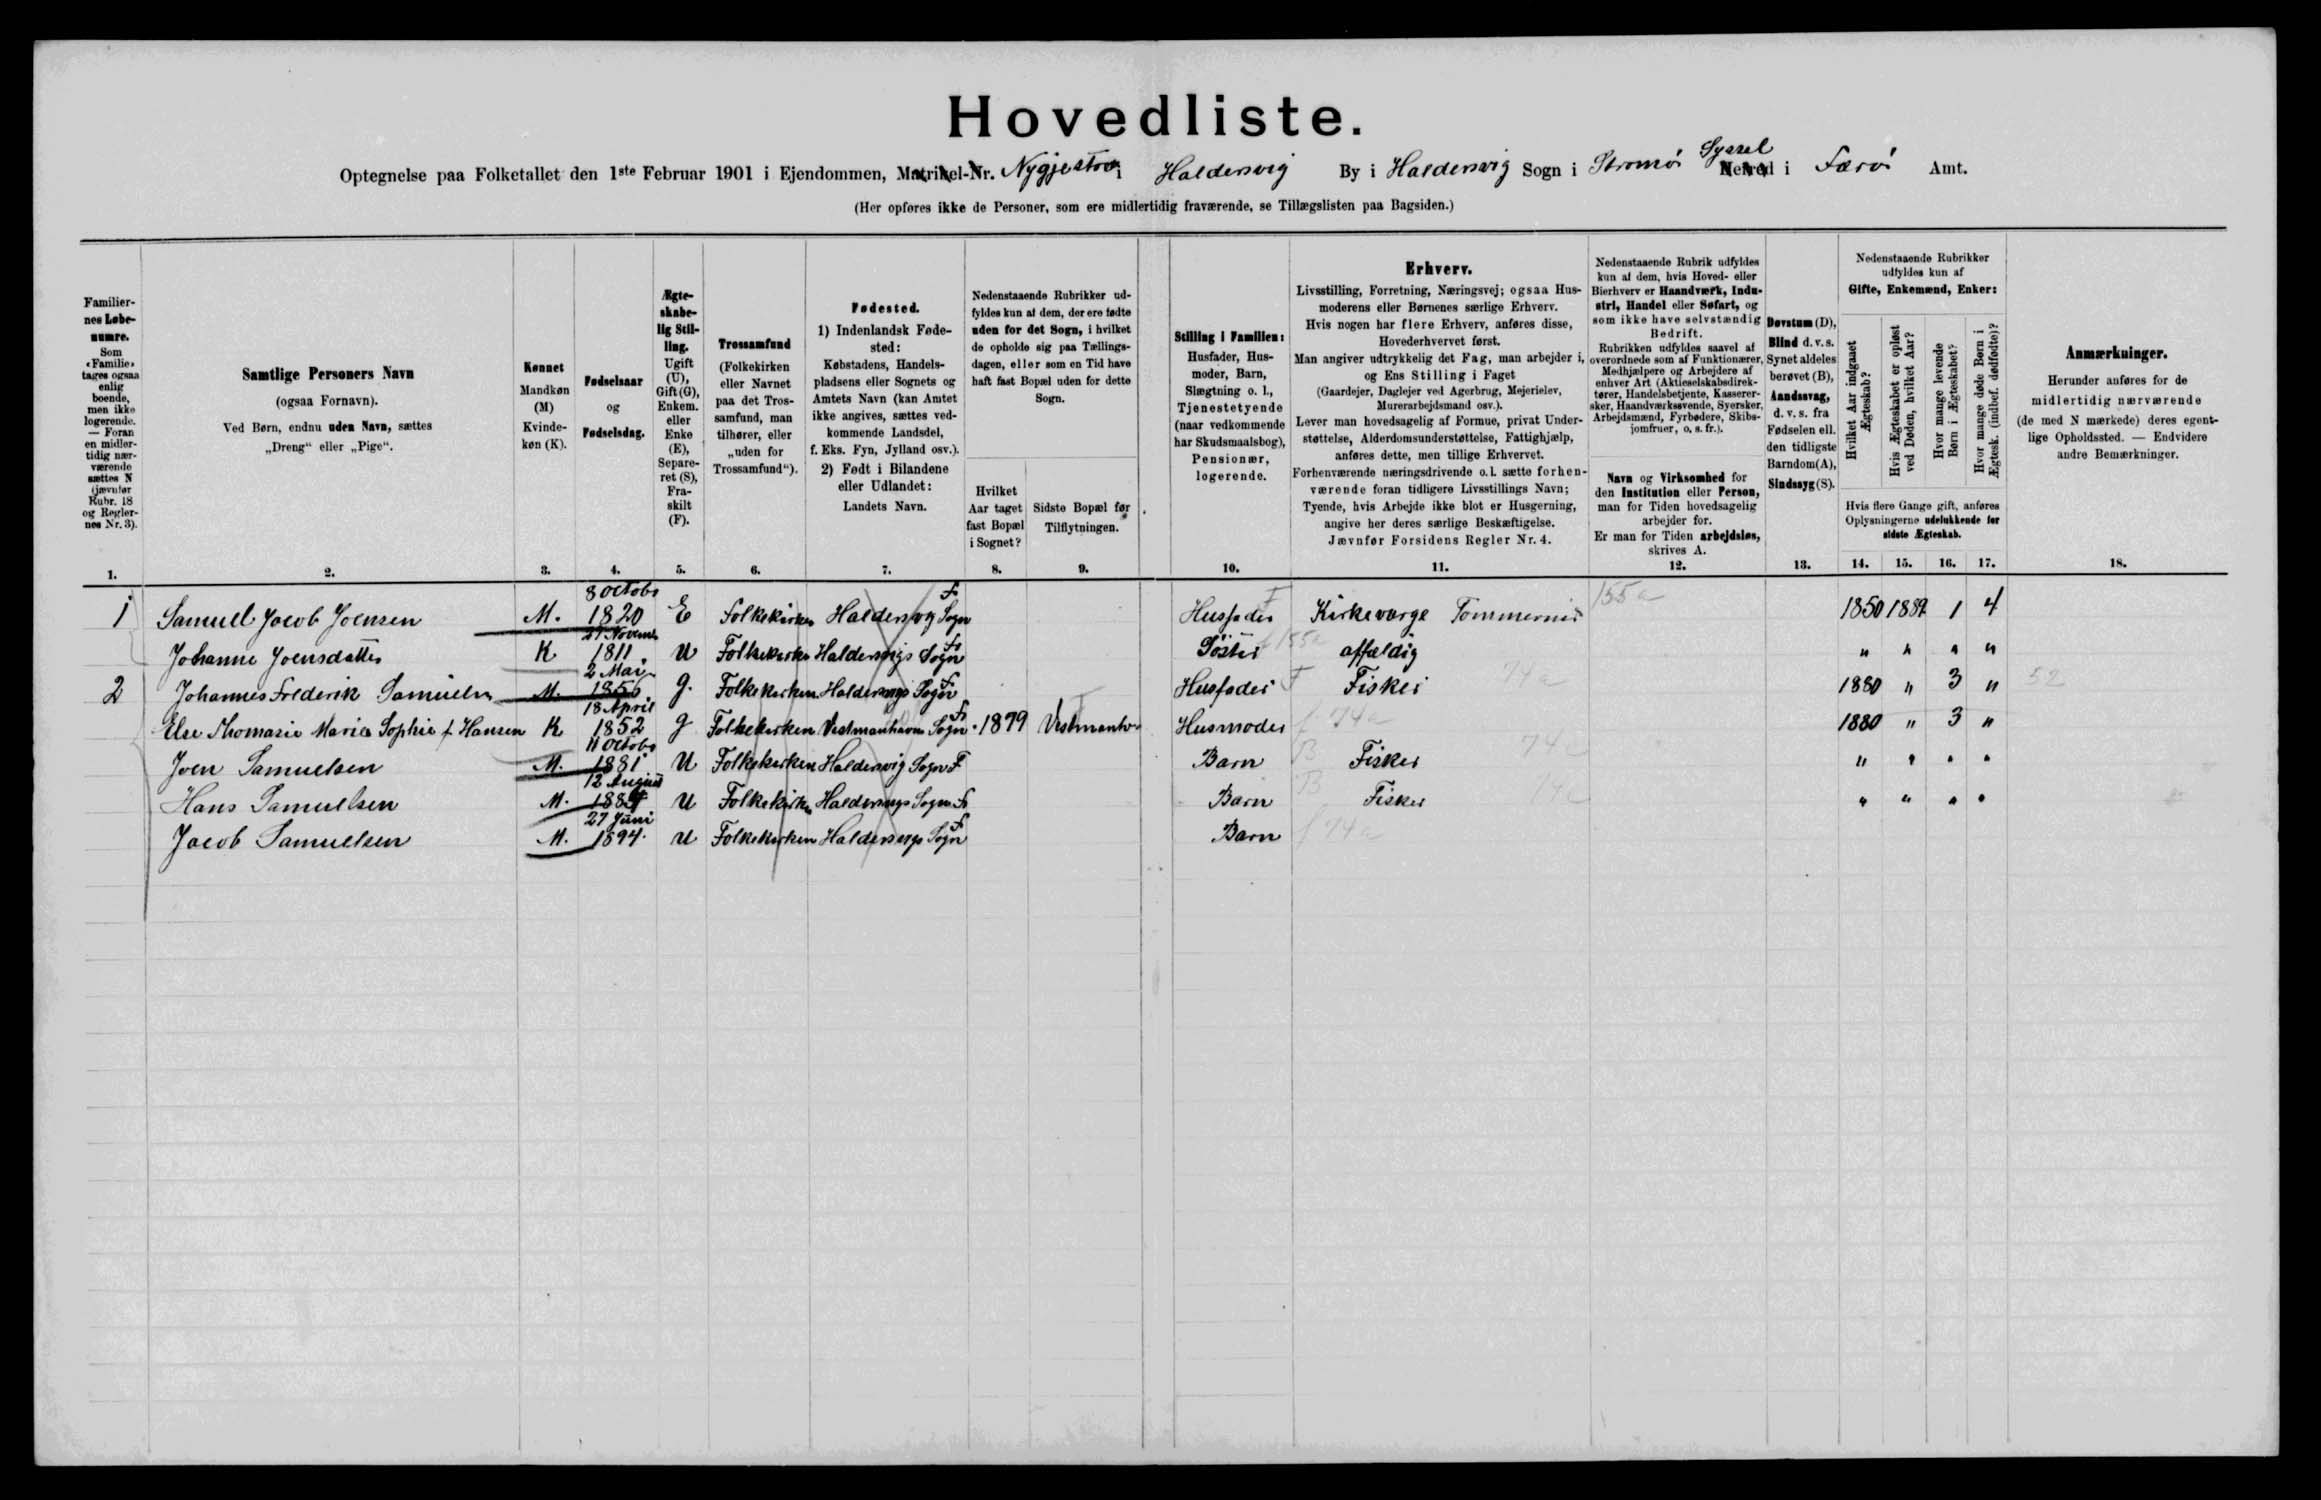 Hovedliste.
Optegnelse paa Folketallet den 1ste Februar 1901 i Ejendommen, Matrikel-Nr. i Haldersvig By i Haldersvig Sogn i Strømø Syssel Herred i Færø Amt.
(Her opføres ikke de Personer, som ere midlertidig fraværende, se Tillægslisten paa Bagsiden.)
Familier-
nes Løbe-
numre.
Som
«Familie»
tages ogsaa
enlig
boende,
men ikke
logerende.
— Foran
en midler-
tidig nær-
værende
sættes N
(jævnfør
Rubr. 18
og Regler-
nes Nr. 3).
1.
Samtlige Personers Navn
(ogsaa Fornavn).
Ved Børn, endnu uden Navn, sættes
„Dreng“ eller „Pige“.
2.
Kønnet
Mandkøn
(M)
Kvinde-
køn (K).
3.
Fødselsaar
og
Fødselsdag.
4.
Ægte-
skabe-
lig Stil-
ling.
Ugift
(U),
Gift (G),
Enkem.
eller
Enke
(E),
Separe-
ret (S),
Fra-
skilt
(F).
5.
Trossamfund
(Folkekirken
eller Navnet
paa det Tros-
samfund, man
tilhører, eller
„uden for
Trossamfund“).
6.
Fødested.
1) Indenlandsk Føde-
sted:
Købstadens, Handels-
pladsens eller Sognets og
Amtets Navn (kan Amtet
ikke angives, sættes ved-
kommende Landsdel,
f. Eks. Fyn, Jylland osv.).
2) Født i Bilandene
eller Udlandet:
Landets Navn.
7.
Nedenstaaende Rubrikker ud-
fyldes kun af dem, der ere fødte
uden for det Sogn, i hvilket
de opholde sig paa Tællings-
dagen, eller som en Tid have
haft fast Bopæl uden for dette
Sogn.
Hvilket
Aar taget
fast Bopæl
i Sognet?
8.
Sidste Bopæl før
Tilflytningen.
9.
Stilling i Familien:
Husfader, Hus-
moder, Barn,
Slægtning o. l.,
Tjenestetyende
(naar vedkommende
har Skudsmaalsbog),
Pensionær,
logerende.
10.
Erhverv.
Livsstilling, Forretning, Næringsvej; ogsaa Hus-
moderens eller Børnenes særlige Erhverv.
Hvis nogen har flere Erhverv, anføres disse,
Hovederhvervet først.
Man angiver udtrykkelig det Fag, man arbejder i,
og Ens Stilling i Faget
(Gaardejer, Daglejer ved Agerbrug, Mejerielev,
Murerarbejdsmand osv.).
Lever man hovedsagelig af Formue, privat Under-
støttelse, Alderdomsunderstøttelse, Fattighjælp,
anføres dette, men tillige Erhvervet.
Forhenværende næringsdrivende o. l. sætte forhen-
værende foran tidligere Livsstillings Navn;
Tyende, hvis Arbejde ikke blot er Husgerning,
angive her deres særlige Beskæftigelse.
Jævnfør Forsidens Regler Nr. 4.
11.
Nedenstaaende Rubrik udfyldes
kun af dem, hvis Hoved- eller
Bierhverv er Haandværk, Indu-
stri, Handel eller Søfart, og
som ikke have selvstændig
Bedrift.
Rubrikken udfyldes saavel af
overordnede som af Funktionærer,
Medhjælpere og Arbejdere af
enhver Art (Aktieselskabsdirek-
tører, Handelsbetjente, Kasserer-
sker, Haandværkssvende, Syersker,
Arbejdsmænd, Fyrbødere, Skibs-
jomfruer, o. s. fr.).
Navn og Virksomhed for
den Institution eller Person,
man for Tiden hovedsagelig
arbejder for.
Er man for Tiden arbejdsløs,
skrives A.
12.
Døvstum (D),
Blind d. v. s.
Synet aldeles
berøvet (B),
Aandssvag,
d. v. s. fra
Fødselen ell.
den tidligste
Barndom (A),
Sindssyg (S).
13.
Nedenstaaende Rubrikker
udfyldes kun af
Gifte, Enkemænd, Enker:
Hvilket Aar indgaaet
Ægteskab?
Hvis Ægteskabet er opløst
ved Døden, hvilket Aar?
Hvor mange levende
Børn i Ægteskabet?
Hvor mange døde Børn i
Ægtesk. (indbef. dødfødte)?
Hvis flere Gange gift, anføres
Oplysningerne udelukkende for
sidste Ægteskab.
14. 15. 16. 17.
Anmærkninger.
Herunder anføres for de
midlertidig nærværende
(de med N mærkede) deres egent-
lige Opholdssted. — Endvidere
andre Bemærkninger.
18.
1 Samuel Jacob Joensen M. 8 Octobr 1820 E Folkekirken Haldersvig Sogn F Husfader F Kirkeværge Tømmermd 155a 1850 1 4
Johanne Joensdatter K 1811 U Folkekirken Haldersvigs Sogn Søster f 155a affældig " " " "
2 Johannes Frederik Samuelsen M. 2 Mai G. Folkekirken Haldersvigs Sogn Husfader F Fisker 74a 1880 " 3 " 52
Else Thomasie Maria Sophie f Hansen K 18 April 1852 G Folkekirken Vestmanhavn Sogn 1879 Vestmanhavn Husmoder f 74a 1880 " 3 "
Joen Samuelsen M. 11 Octobr 1881 U Folkekirken Haldersvig Sogn F Barn B Fisker 74a " " " "
Hans Samuelsen M. 12 August U Folkekirken Haldersvigs Sogn Barn B Fisker 74a " " " "
Jacob Samuelsen M. 27 Juni 1894. U Folkekirken Haldersvigs Sogn Barn f 74a